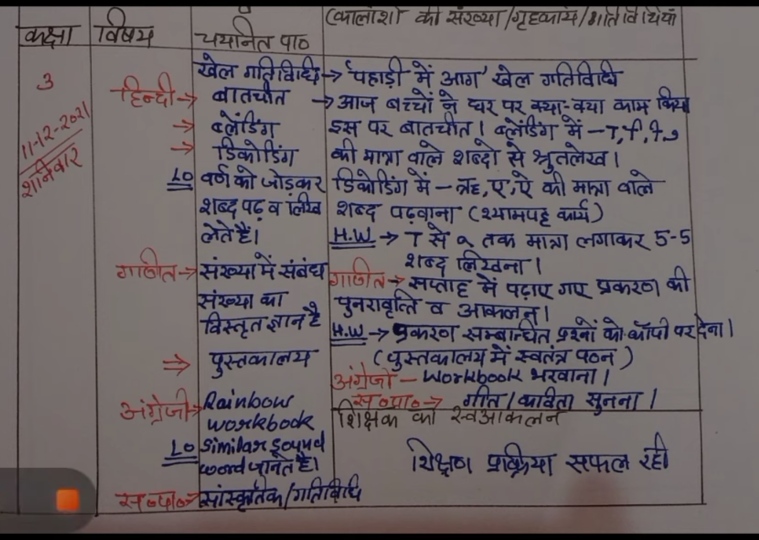 (कालांशो की संख्या/गृहकार्य/गतिविधियाँ
कक्षा विषय चयनित पाठ
3
11-12-2021
शनिवार
खेल गतिविधि → 'पहाड़ी में आग' खेल गतिविधि
हिन्दी → बातचीत → आज बच्चों ने घर पर क्या-क्या काम किया
→ ब्लेंडिंग इस पर बातचीत। ब्लेंडिंग में - ा, ि, ी, ु
→ डिकोडिंग की मात्रा वाले शब्दो से श्रुतलेख।
LO वर्ण को जोड़कर डिकोडिंग में - ऋ, ए, ऐ की मात्रा वाले
शब्द पढ़ व लिख शब्द पढ़वाना (श्यामपट्ट कार्य)
लेते हैं। H.W → ा से ृ तक मात्रा लगाकर 5-5
शब्द लिखना।
गणित → संख्या में संबंध गणित → सप्ताह में पढ़ाए गए प्रकरण की
संख्या का पुनरावृत्ति व आकलन।
विस्तृत ज्ञान है H.W → प्रकरण सम्बन्धित प्रश्नों को कॉपी पर देना।
⇒ पुस्तकालय (पुस्तकालय में स्वतंत्र पठन)
अंग्रेजी - Workbook भरवाना।
अंग्रेजी → Rainbow स०पा० → गीत/कविता सुनना।
workbook शिक्षक का स्वआकलन
LO Similar sound
word जानते है। शिक्षण प्रक्रिया सफल रही
स०पा० → सांस्कृतिक/गतिविधि